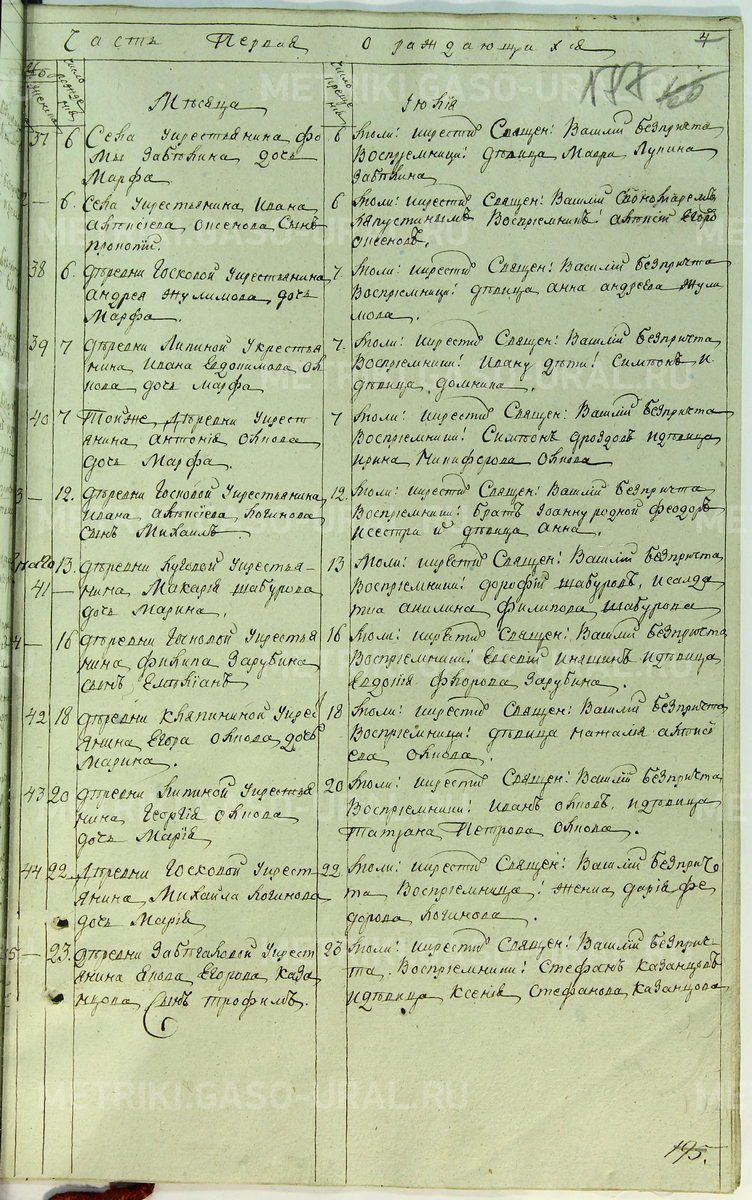 Часть Первая О раждающихся 4
Число рожденія
Число крещенія
Мѣсяца Іюлія
177
37 6 Села Укрестьянина Фо
мы Забѣлина дочь
Марфа
6 молит: икрестил Священ: Василій безпричта
Воспріемница: дѣвица Мавра Лупина
Забѣлина
6. Села Укрестьянина Ивана
Алексѣева Аксенова Сынъ
Прокопій.
6 молит: икрестил Священ: Василій Спономаремъ
Капустинымъ Воспріемникъ! Алексѣй Егоро
Аксеновъ.
38 6. деревни Госковой Укрестьянина
Андрея Жулимова дочь
Марфа.
7. молит: икрестил Священ: Василій безпричта
Воспріемница! дѣвица Анна Андреева Жули
мова.
39 7 деревни Липиной Укрестья
нина Ивана Евдокимова
дочь Марфа
7. молит: икрестил Священ: Василій безпричта
Воспріемники! Ивану дѣти! Симионъ и
дѣвица домника.
40 7 Тойже деревни Укрест
янина Антонія
дочь Марфа.
7 молит: икрестил Священ: Василій безпричта
Воспріемники! Симионъ дроздовъ идѣвица
Ирина Никифорова
3 — 12. деревни Госковой Укрестьянина
Ивана Алексѣева Логинова
сынъ Михаилъ
12. молит: икрестил Священ: Василій безпричта
Воспріемники! братъ Іоанну родной Феодоръ
исестра дѣвица Анна.
41 — 13. деревни Луговой Укрестья-
нина Макарія Шабурова
дочь Марина.
13 молит: икрестил Священ: Василій безпричта
Воспріемники! дорофѣй Шабуровъ, исолда
тка Акилина Филипова Шабурова
— 16 деревни Госковой Укрестья
нина Филипа Зарубина
сынъ Емиліанъ
16 молит: икрестил Священ: Василій безпричта
Воспріемники! Евсевій идѣвица
Евдокія Флорова Зарубина.
42 18 деревни Кляпининой Укрес
янина Егора дочь
Марина.
18 молит: икрестил Священ: Василій безпричта
Воспріемница! дѣвица наталья Алексѣ
ева
43 20 деревни Липиной Укрестья
нина Георгія
дочь Марія
20 молит: икрестил Священ: Василій безпричта
Воспріемники! Иванъ идѣвица
Татіана Петрова
44 22. деревни Госковой Укрест
янина Михайла Логинова
дочь Марія
22. молит: икрестил Священ: Василій безприч
та Воспріемница! женка дарія Фе
дорова Логинова.
— 23. деревни Укрест
янина Егорова Каза
нцова Сынъ Трофимъ.
23 молит: икрестил Священ: Василій безприч-
та. Воспріемники! Стефанъ Казанцовъ
идѣвица Ксенія Стефанова Казанцова
195.
METRIKI.GASO-URAL.RU